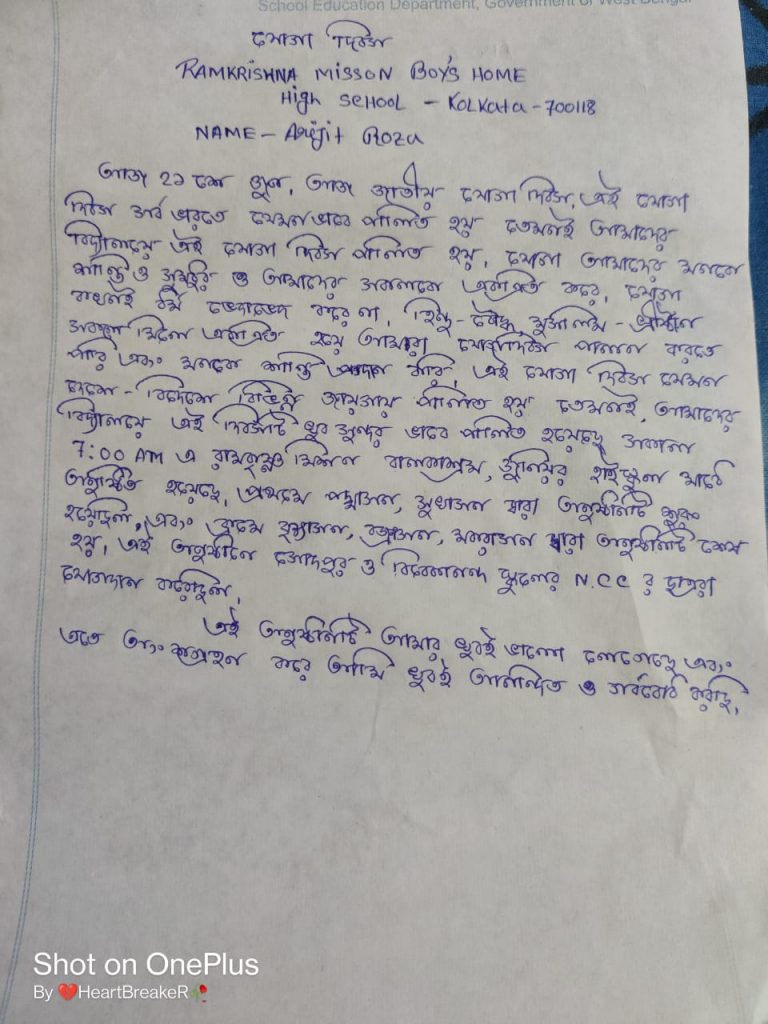 School Education Department, Government of West Bengal
যোগা দিবস
RAMKRISHNA MISSON BOY'S HOME
High SCHOOL - KOLKATA - 700118
NAME - Arijit Roza
আজ ২১ শে জুন, আজ জাতীয় যোগা দিবস, এই যোগা
দিবস সর্ব ভারতে যেমন ভাবে পালিত হয় তেমনই আমাদের
বিদ্যালয়ে এই যোগা দিবস পালিত হয়, যোগা আমাদের মনকে
শান্তি ও সুস্থির ও আমাদের সকলকে একত্রিত করে, যোগা
কখনই ধর্ম ভেদাভেদ করে না, হিন্দু-বৌদ্ধ মুসলিম-খ্রীষ্টান
সকলে মিলে একত্রিত হয়ে আমরা যোগাদিবস পালন করতে
পারি এবং মনকে শান্তি প্রদান করি, এই যোগা দিবস যেমন
দেশে-বিদেশে বিভিন্ন জায়গায় পালিত হয় তেমনই, আমাদের
বিদ্যালয়ে এই দিবসটি খুব সুন্দর ভাবে পালিত হয়েছে সকাল
7:00 AM এ রামকৃষ্ণ মিশন বালকাশ্রম, জুনিয়র হাইস্কুল মাঠে
অনুষ্ঠিত হয়েছে, প্রথমে পদ্মাসন, সুখাসন দ্বারা অনুষ্ঠানটি শুরু
হয়েছিল, এবং ক্রমে বৃক্ষাসন, বজ্রাসন, দ্বারা অনুষ্ঠানটি শেষ
হয়, এই অনুষ্ঠানে সোদপুর ও বিবেকানন্দ স্কুলের N.C.C র ছাত্ররা
যোগদান করেছিল,
এই অনুষ্ঠানটি আমার খুবই ভালো লেগেছে এবং
এতে অংশগ্রহন করে আমি খুবই আনন্দিত ও গর্ববোধ করছি,
Shot on OnePlus
By ❤️HeartBreakeR🥀